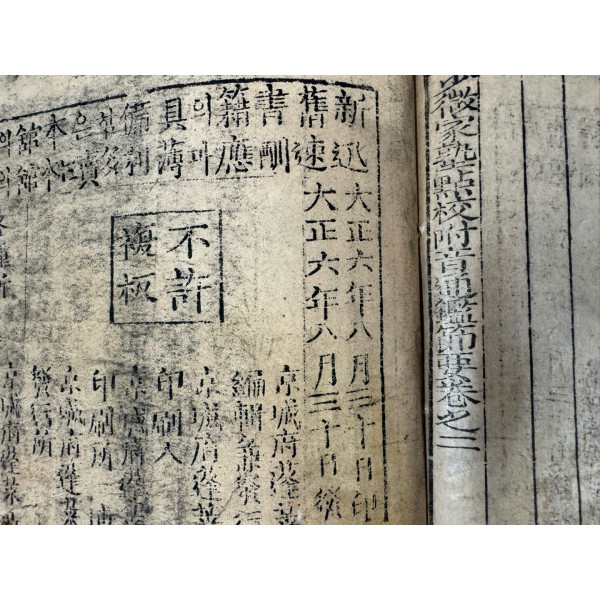 微家塾點校附音通鑑節要卷之二
大正六年八月三十日印
大正六年八月三十日發
新舊書籍의具備
은本館의
迅速酬應며薄利
賣
館의
不許
複板
京城府蓬萊
編輯兼發行
京城府蓬萊
印刷人
京城府蓬萊
印刷所
京城府蓬萊
發行所